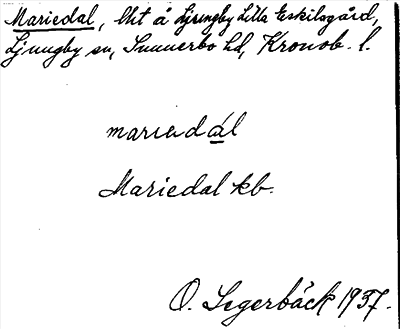 Mariedal, lht å Ljungby Lilla Eskilsgård,
Ljungby sn, Sunnerbo hd, Kronob. l.
mariedál
Mariedal kb.
O. Segerbäck 1937.